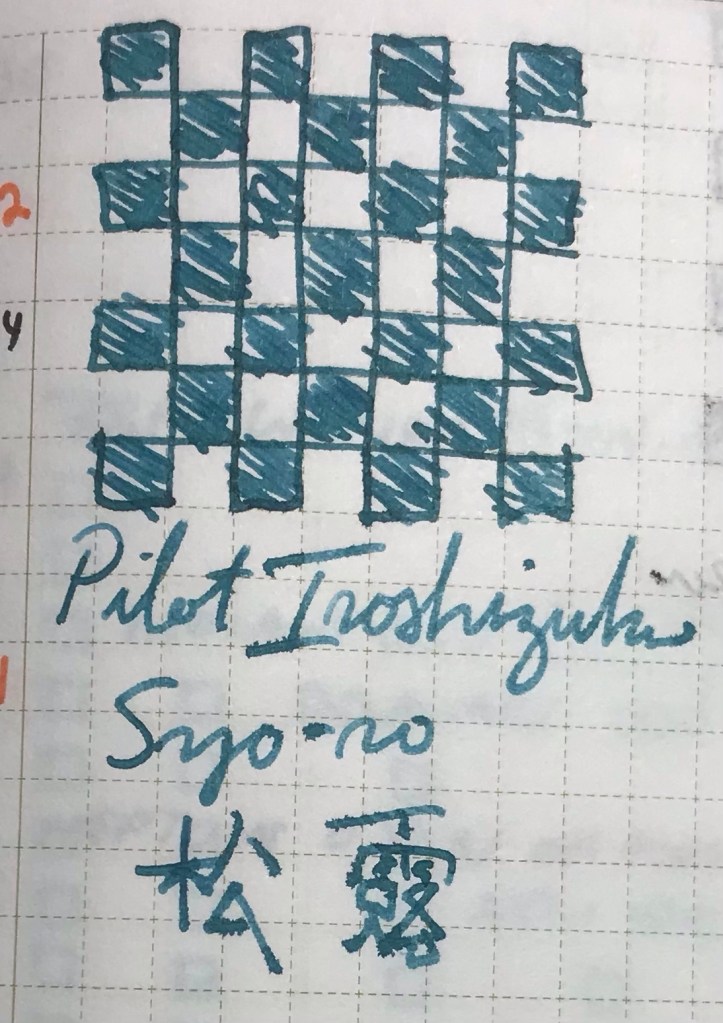 2
4
Pilot Iroshizuku
Syo-ro
松露